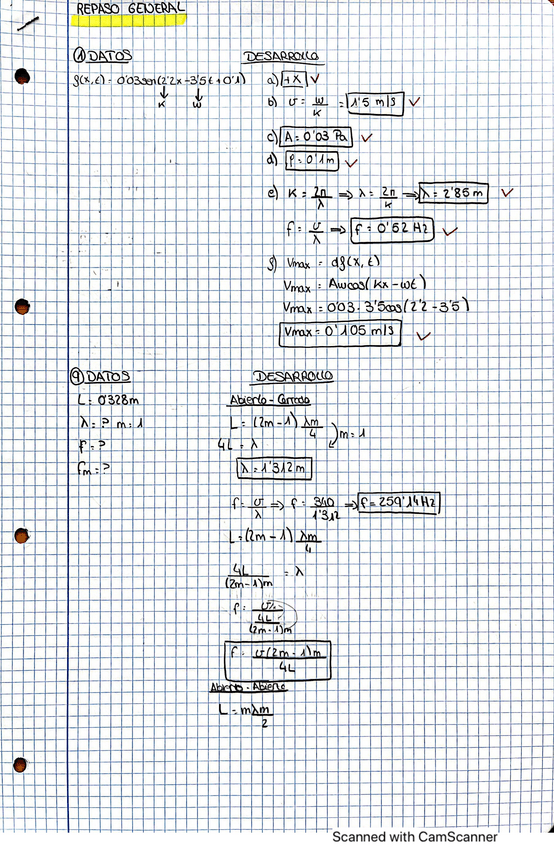 REPASO GENERAL
① DATOS
ξ(x,t) = 0'03 sen(2'2x - 3'5t + 0'1)
↓ ↓
K W
DESARROLLO
a) +X ✓
b) v = w/K = 1'5 m/s ✓
c) A = 0'03 Pa ✓
d) ρ = 0'1m ✓
e) K = 2π/λ ⇒ λ = 2π/K ⇒ λ = 2'85 m ✓
f = v/λ ⇒ f = 0'52 Hz ✓
f) Vmax = dξ(x,t)
Vmax = Awcos(Kx - wt)
Vmax = 0'03 · 3'5cos(2'2 - 3'5)
Vmax = 0'105 m/s ✓
⑨ DATOS
L = 0'328m
λ = ? m = 1
f = ?
fm = ?
DESARROLLO
Abierto - Cerrado
L = (2m - 1) λm/4
4L = λ
m = 1
λ = 1'312 m
f = v/λ ⇒ f = 340/1'312 ⇒ f = 259'14 Hz
L = (2m - 1) λm/4
4L/(2m-1)m = λ
f = v/(4L/(2m-1)m)
f = v(2m - 1)m/4L
Abierto - Abierto
L = mλm/2
Scanned with CamScanner